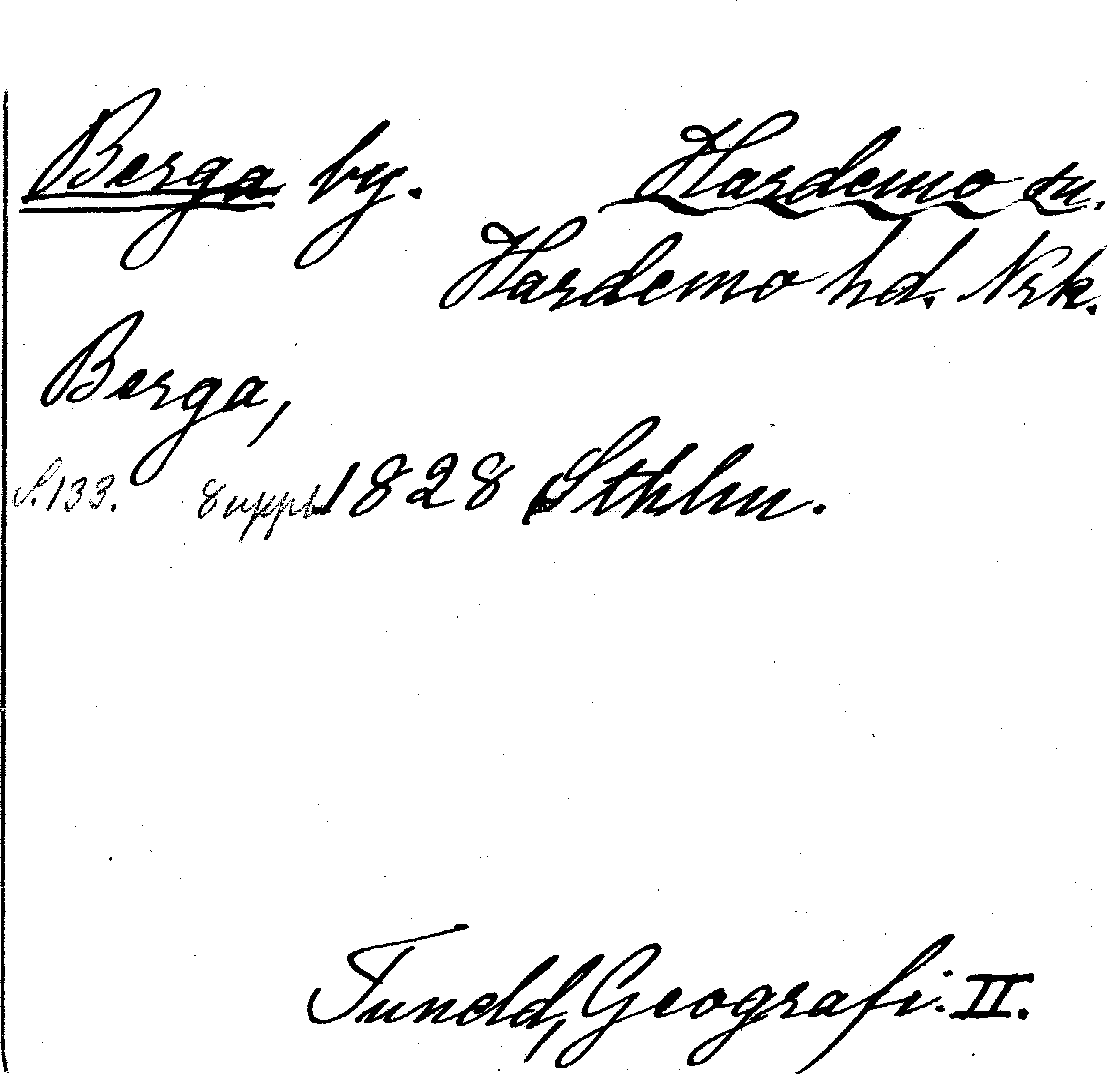 Berga by. Hardemo sn.
Hardemo hd. Nrk.
Berga,
S. 133. 8 uppl. 1828 Sthlm.
Tuneld, Geografi. II.